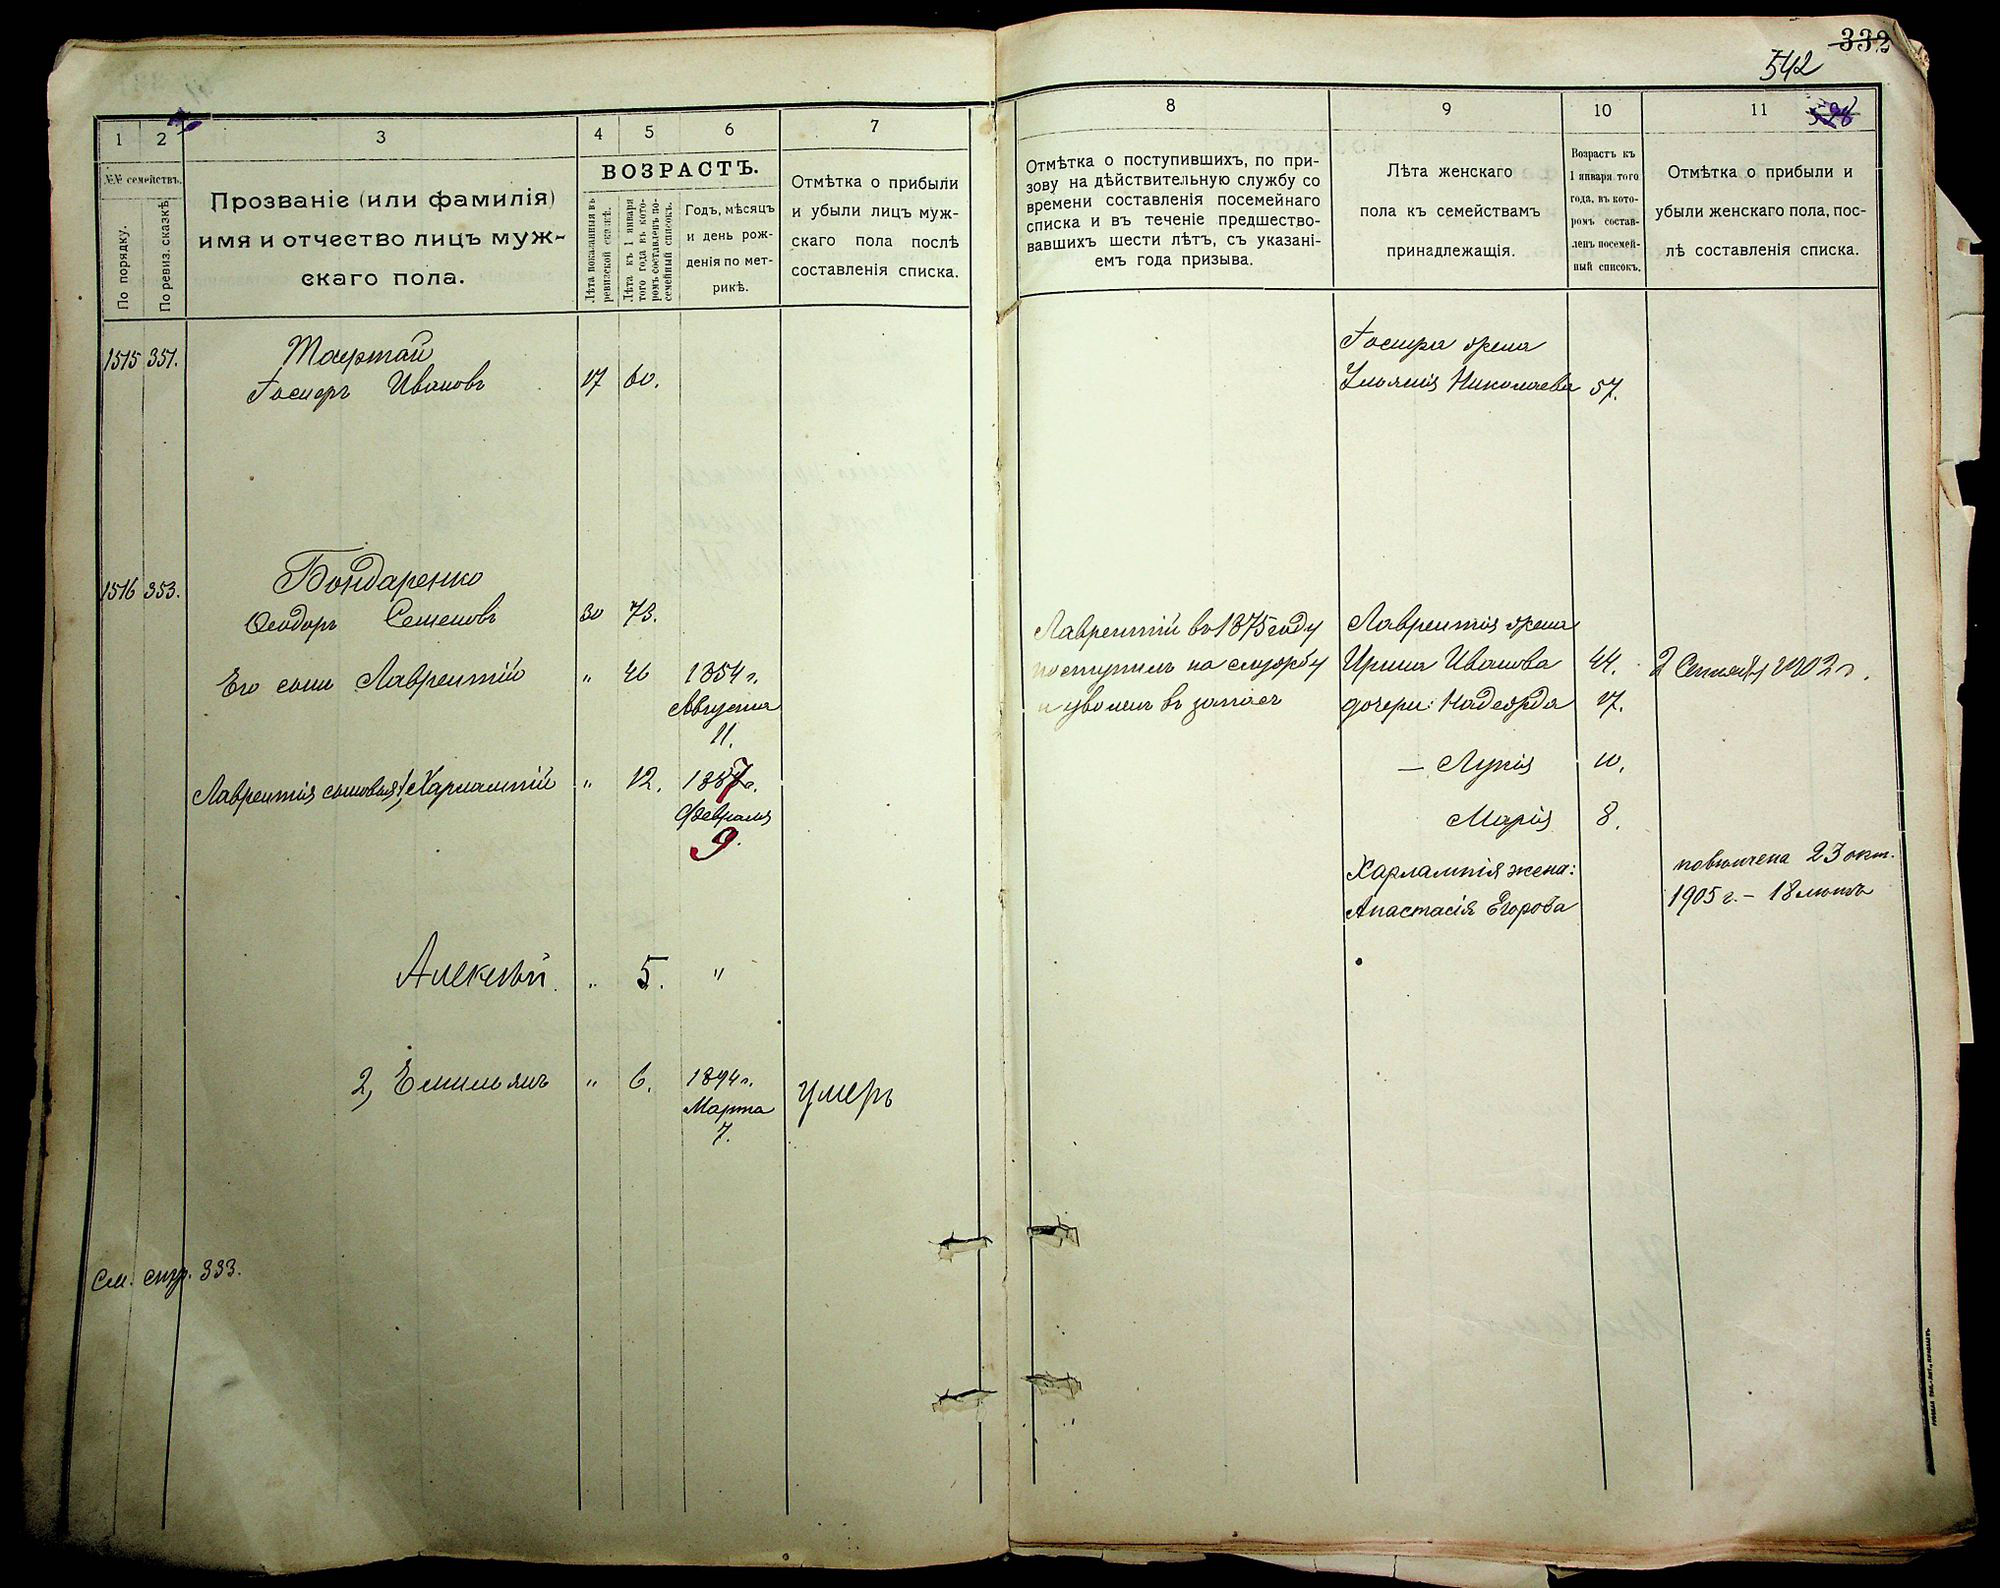 332
542
1
2
3
4
5
6
7
№№ семействъ.
По порядку.
По ревиз. сказкѣ.
Прозваніе (или фамилія)
имя и отчество лицъ муж-
скаго пола.
ВОЗРАСТЪ.
Лѣта показанныя въ
ревизской сказкѣ.
Лѣта къ 1 января
того года въ кото-
ромъ составленъ по-
семейный списокъ.
Годъ, мѣсяцъ
и день рож-
денія по мет-
рикѣ.
Отмѣтка о прибыли
и убыли лицъ муж-
скаго пола послѣ
составленія списка.
8
9
10
11
Отмѣтка о поступившихъ, по при-
зову на дѣйствительную службу со
времени составленія посемейнаго
списка и въ теченіе предшество-
вавшихъ шести лѣтъ, съ указані-
емъ года призыва.
Лѣта женскаго
пола къ семействамъ
принадлежащія.
Возрастъ къ
1 января того
года, въ кото-
ромъ состав-
ленъ посемей-
ный списокъ.
Отмѣтка о прибыли и
убыли женскаго пола, пос-
лѣ составленія списка.
1515 351.
Иванов 17 60.
жена
Николаева 57.
1516 353.
Бондаренко
Ѳеодоръ Семеновъ 30 73.
Его сынъ Лаврентій " 46 1854 г.
Августа
11.
Лаврентія сыновья: 1, Харлампій " 12. 1887 г.
Февраля
9.
Алексѣй " 5. "
2, Емильянъ " 6. 1894 г. умеръ
Марта
7.
См. стр. 333.
Лаврентій въ 1875 году
поступилъ на службу
и уволенъ въ запасъ
Лаврентія жена
Ирина Иванова 44. 2 Сентября 1902 г.
дочери: Надежда 17.
— Лукія 10.
Марія 8.
Харлампія жена:
Анастасія Егорова
повѣнчена 23 окт.
1905 г. – 18 лѣтъ